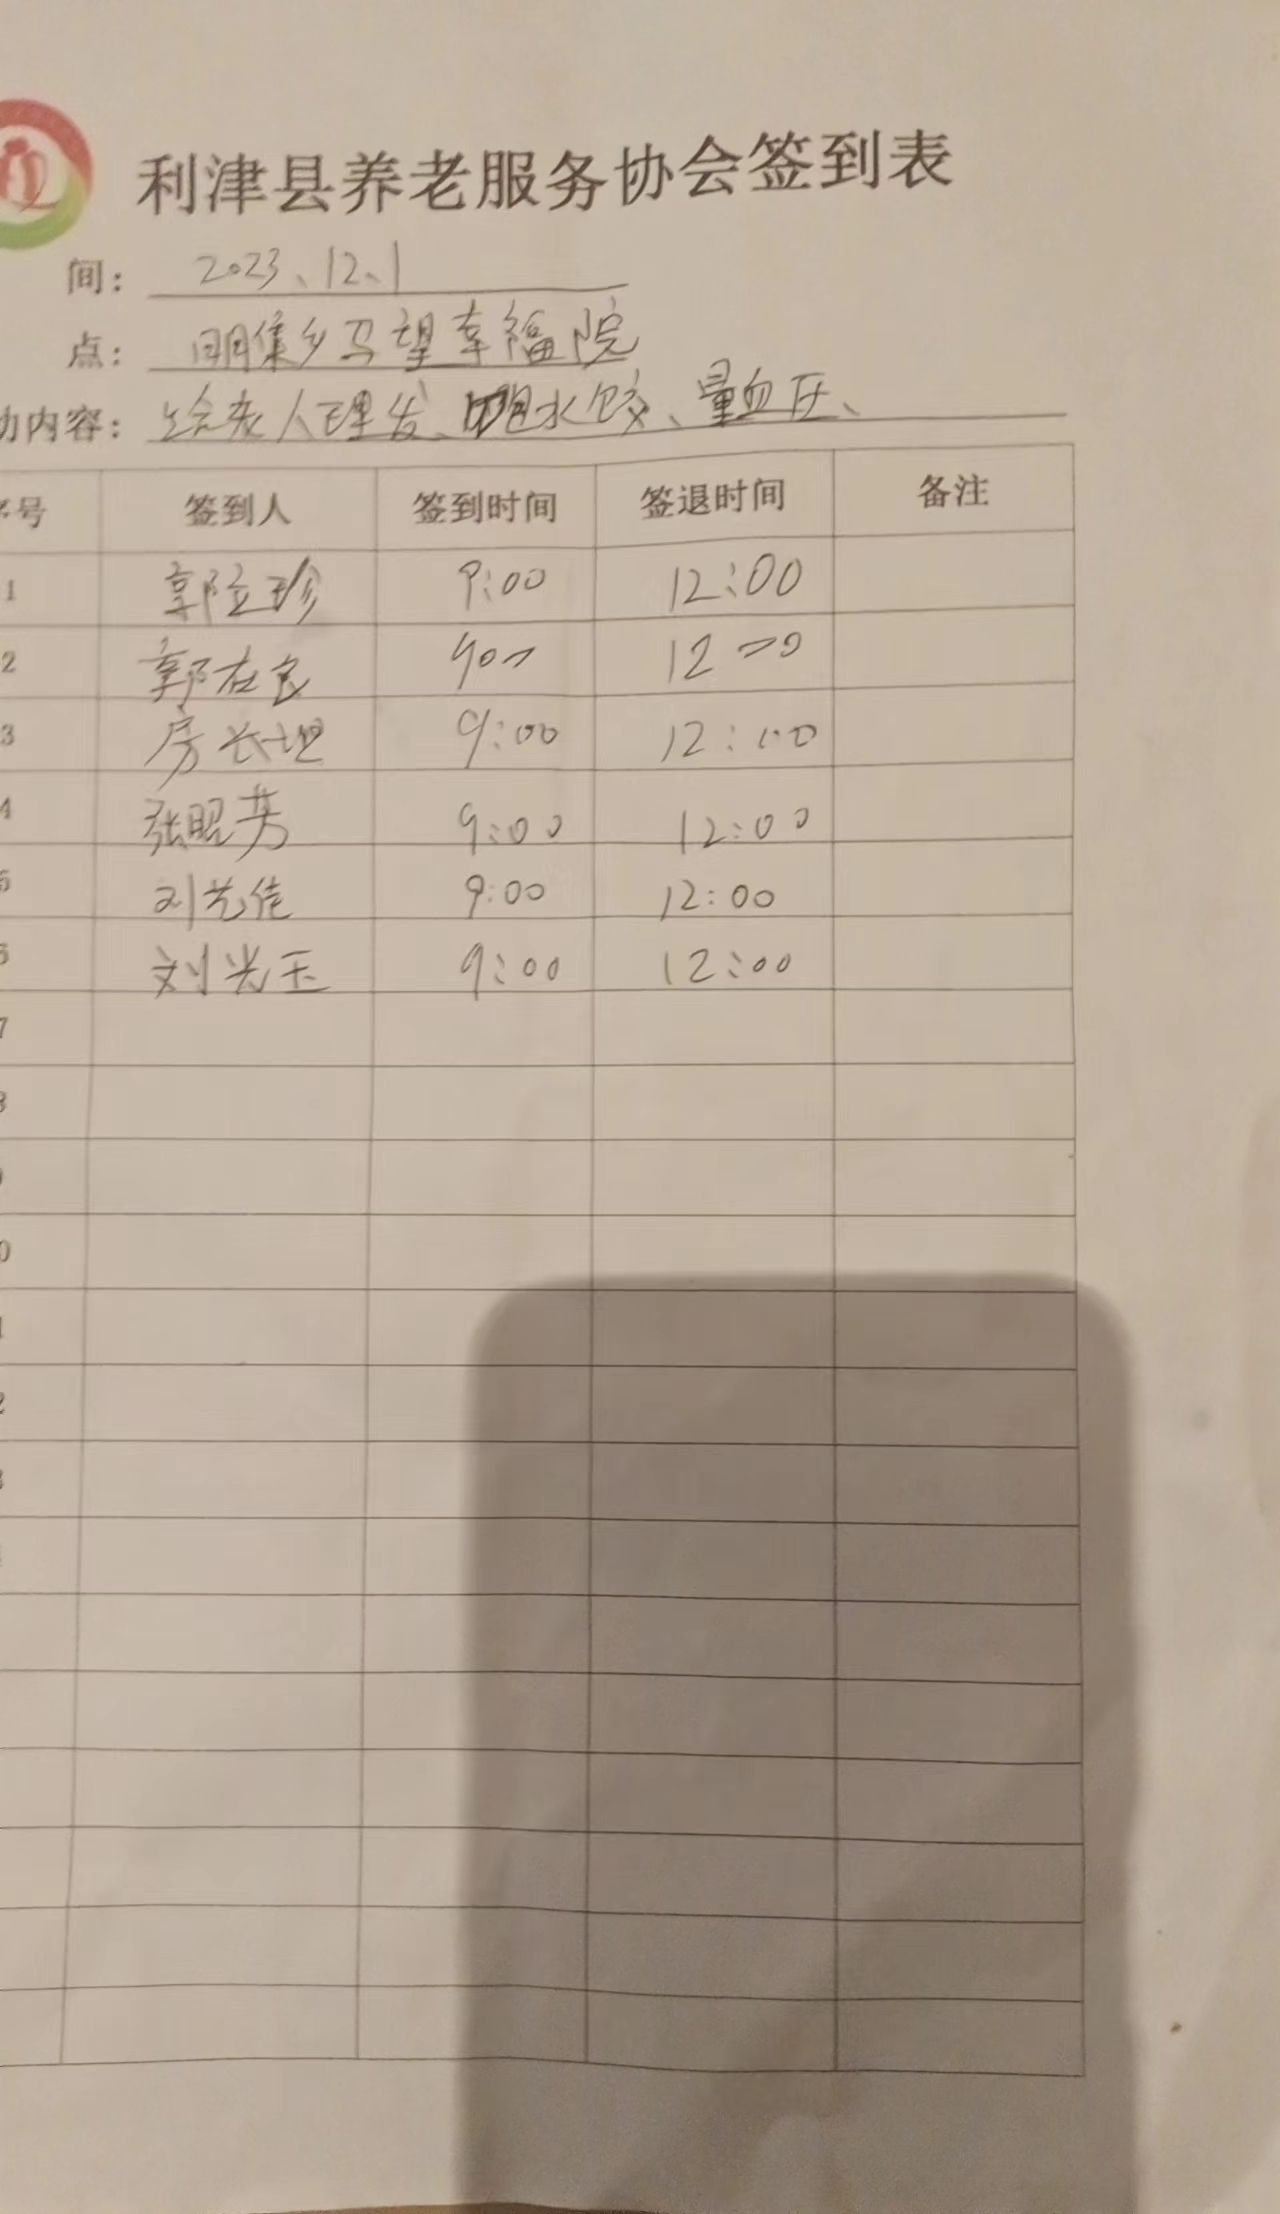 利津县养老服务协会签到表
间： 2023、12、1
点： 明集乡马望幸福院
动内容： 给老人理发、水饺、量血压、
序号 签到人 签到时间 签退时间 备注
1 郭 珍 9:00 12:00
2 郭 12
3 房长 9:00 12:00
4 张昭芳 9:00 12:00
5 刘 9:00 12:00
6 刘光玉 9:00 12:00
7
8